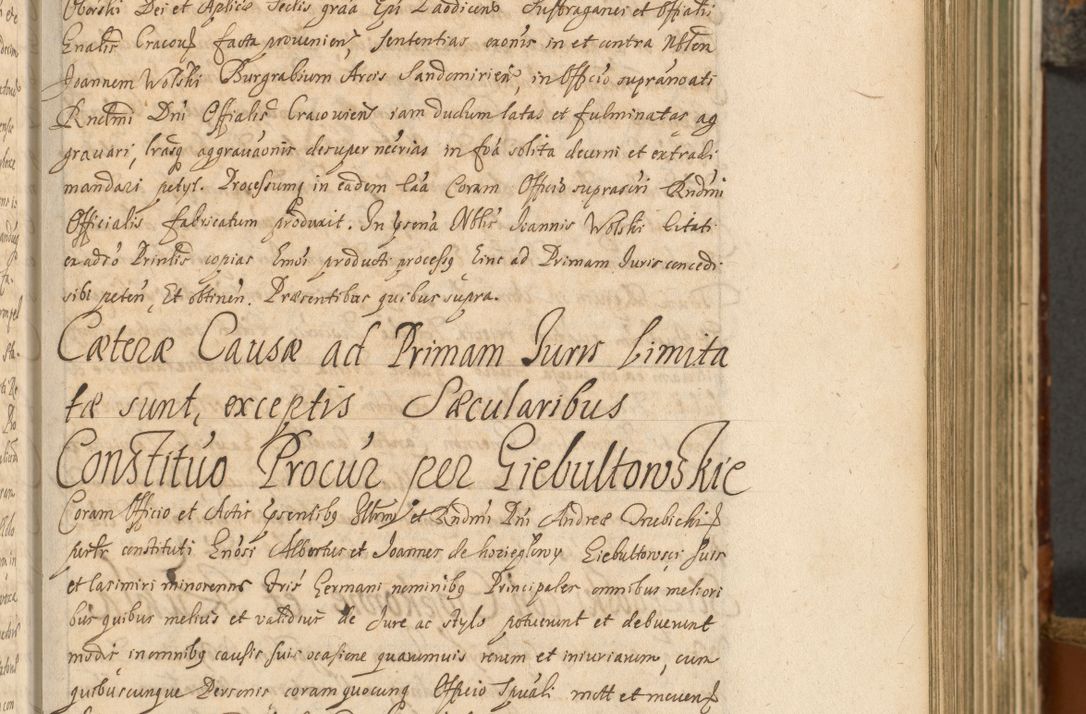 Oborski Dei et Aplicæ Sedis graa Epi Laodicen Suffraganei et Offialis
Gnalis Cracovien facta provenien sententias exonis in et contra Nblem
Joannem Wolski Burgrabium Arcis Sandomirien, in Officio supranoati
Rndmi Dni Offialis Cracovien iam dudum latas et fulminatas ag
gravari, lrasq aggravaonis desuper necrias in foa solita decerni et extradi
mandari petyt. Processumq in eadem caa Coram Officio suprascri Rndmi
Officialis fabricatum produxit. In psena Nblis Joannis Wolski Citati
ex adso Prinlis copias Emoi producti processq hinc ad Primam Juris concedi
sibi peten, Et obtinen. Præsentibus quibus supra.
Cæteræ Causæ ad Primam Juris Limita
tæ sunt, exceptis Sæcularibus
Constituo Procur per Giebultowskie
Coram Officio et Actis psentibq Illrmi et Rndmi Dni Andreæ Trzebicki
psnlr constituti Gnosi Albertus et Joannes de hozieglowy Giebultowscy suis
et Casimiri minorennis fris Germani nominibq Principales omnibus meliori
bus quibus melius et validius de Jure ac Stylo potuerunt et debuerunt
modis in omnibq causis suis ocasione quarumvis rerum et iniuriarum, cum
quibuscunque Personis coram quocunq Officio Spuali mott et moven